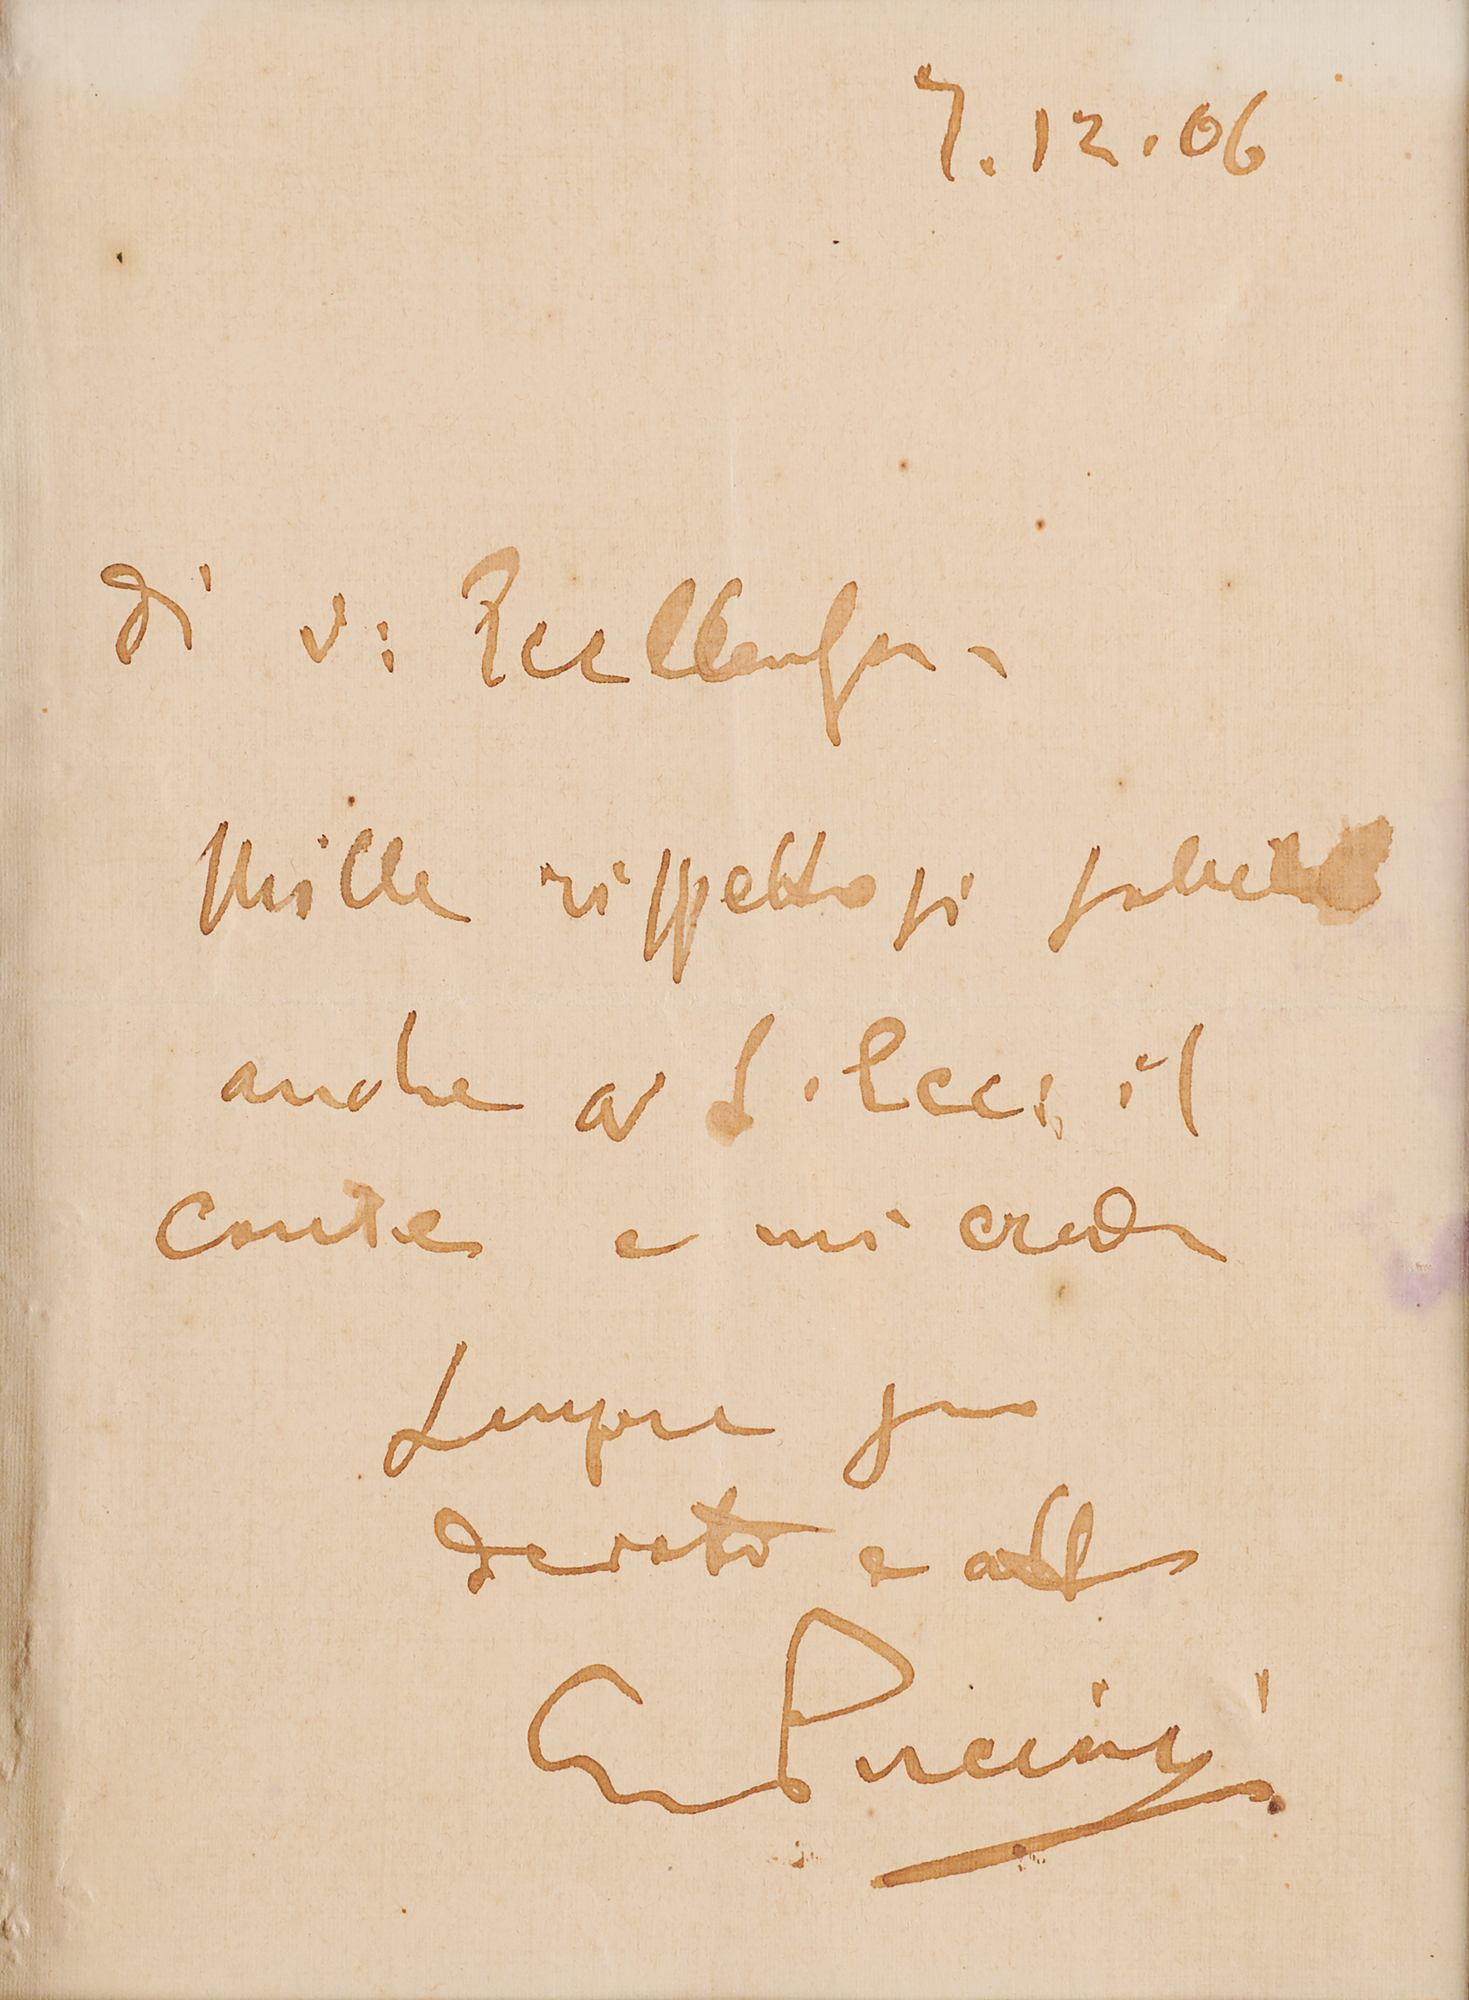 7.12.06
di V: Eccellenza.
Mille rispettosi saluti
anche a S. Ecc: il
Conte e mi creda
sempre suo
devoto e
G Puccini